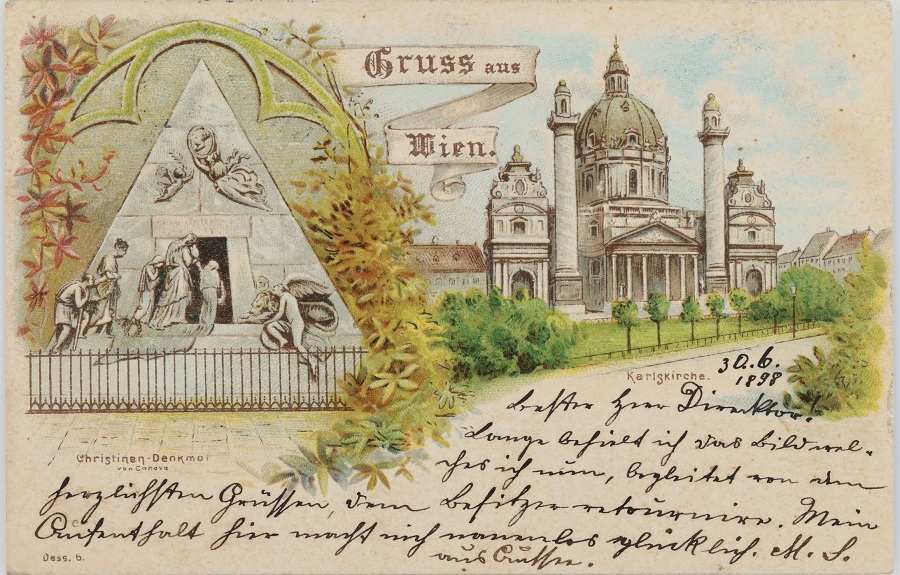 Gruss aus
Wien.
Karlskirche.
30.6.
1898
Christinen-Denkmal
von Canova
bester Herr Direktor!
Lange behielt ich das Bild wel-
ches ich nun, begleitet von den
herzlichsten Grüssen, dem Besitzer retournire. Mein
Aufenthalt hier macht mich namenlos glücklich. M. S.
aus Aussee.
Dess. b.